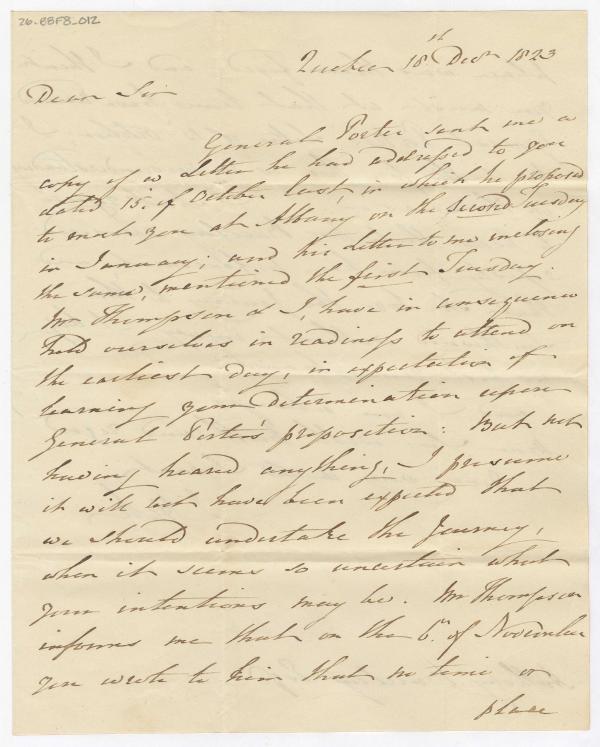 26-BBF8-012
Quebec 18th Decr 1823
Dear Sir
General Porter sent me a
copy of a Letter he had addressed to you
dated 15. of October last, in which he proposed
to meet you at Albany on the second Tuesday
in January; and his Letter to me inclosing
the same, mentioned the first Tuesday.
Mr Thompson & I, have in consequence
held ourselves in readiness to attend on
the earliest day, in expectation of
learning your Determination upon
General Porter's proposition: But not
having heard anything, I presume
it will not have been expected that
we should undertake the Journey,
when it seems so uncertain what
your intentions may be. Mr Thompson
informs me that on the 6th of November
you wrote to him that no time or
place